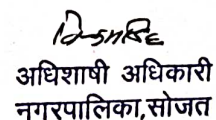 अधिशाषी अधिकारी
नगरपालिका,सोजत